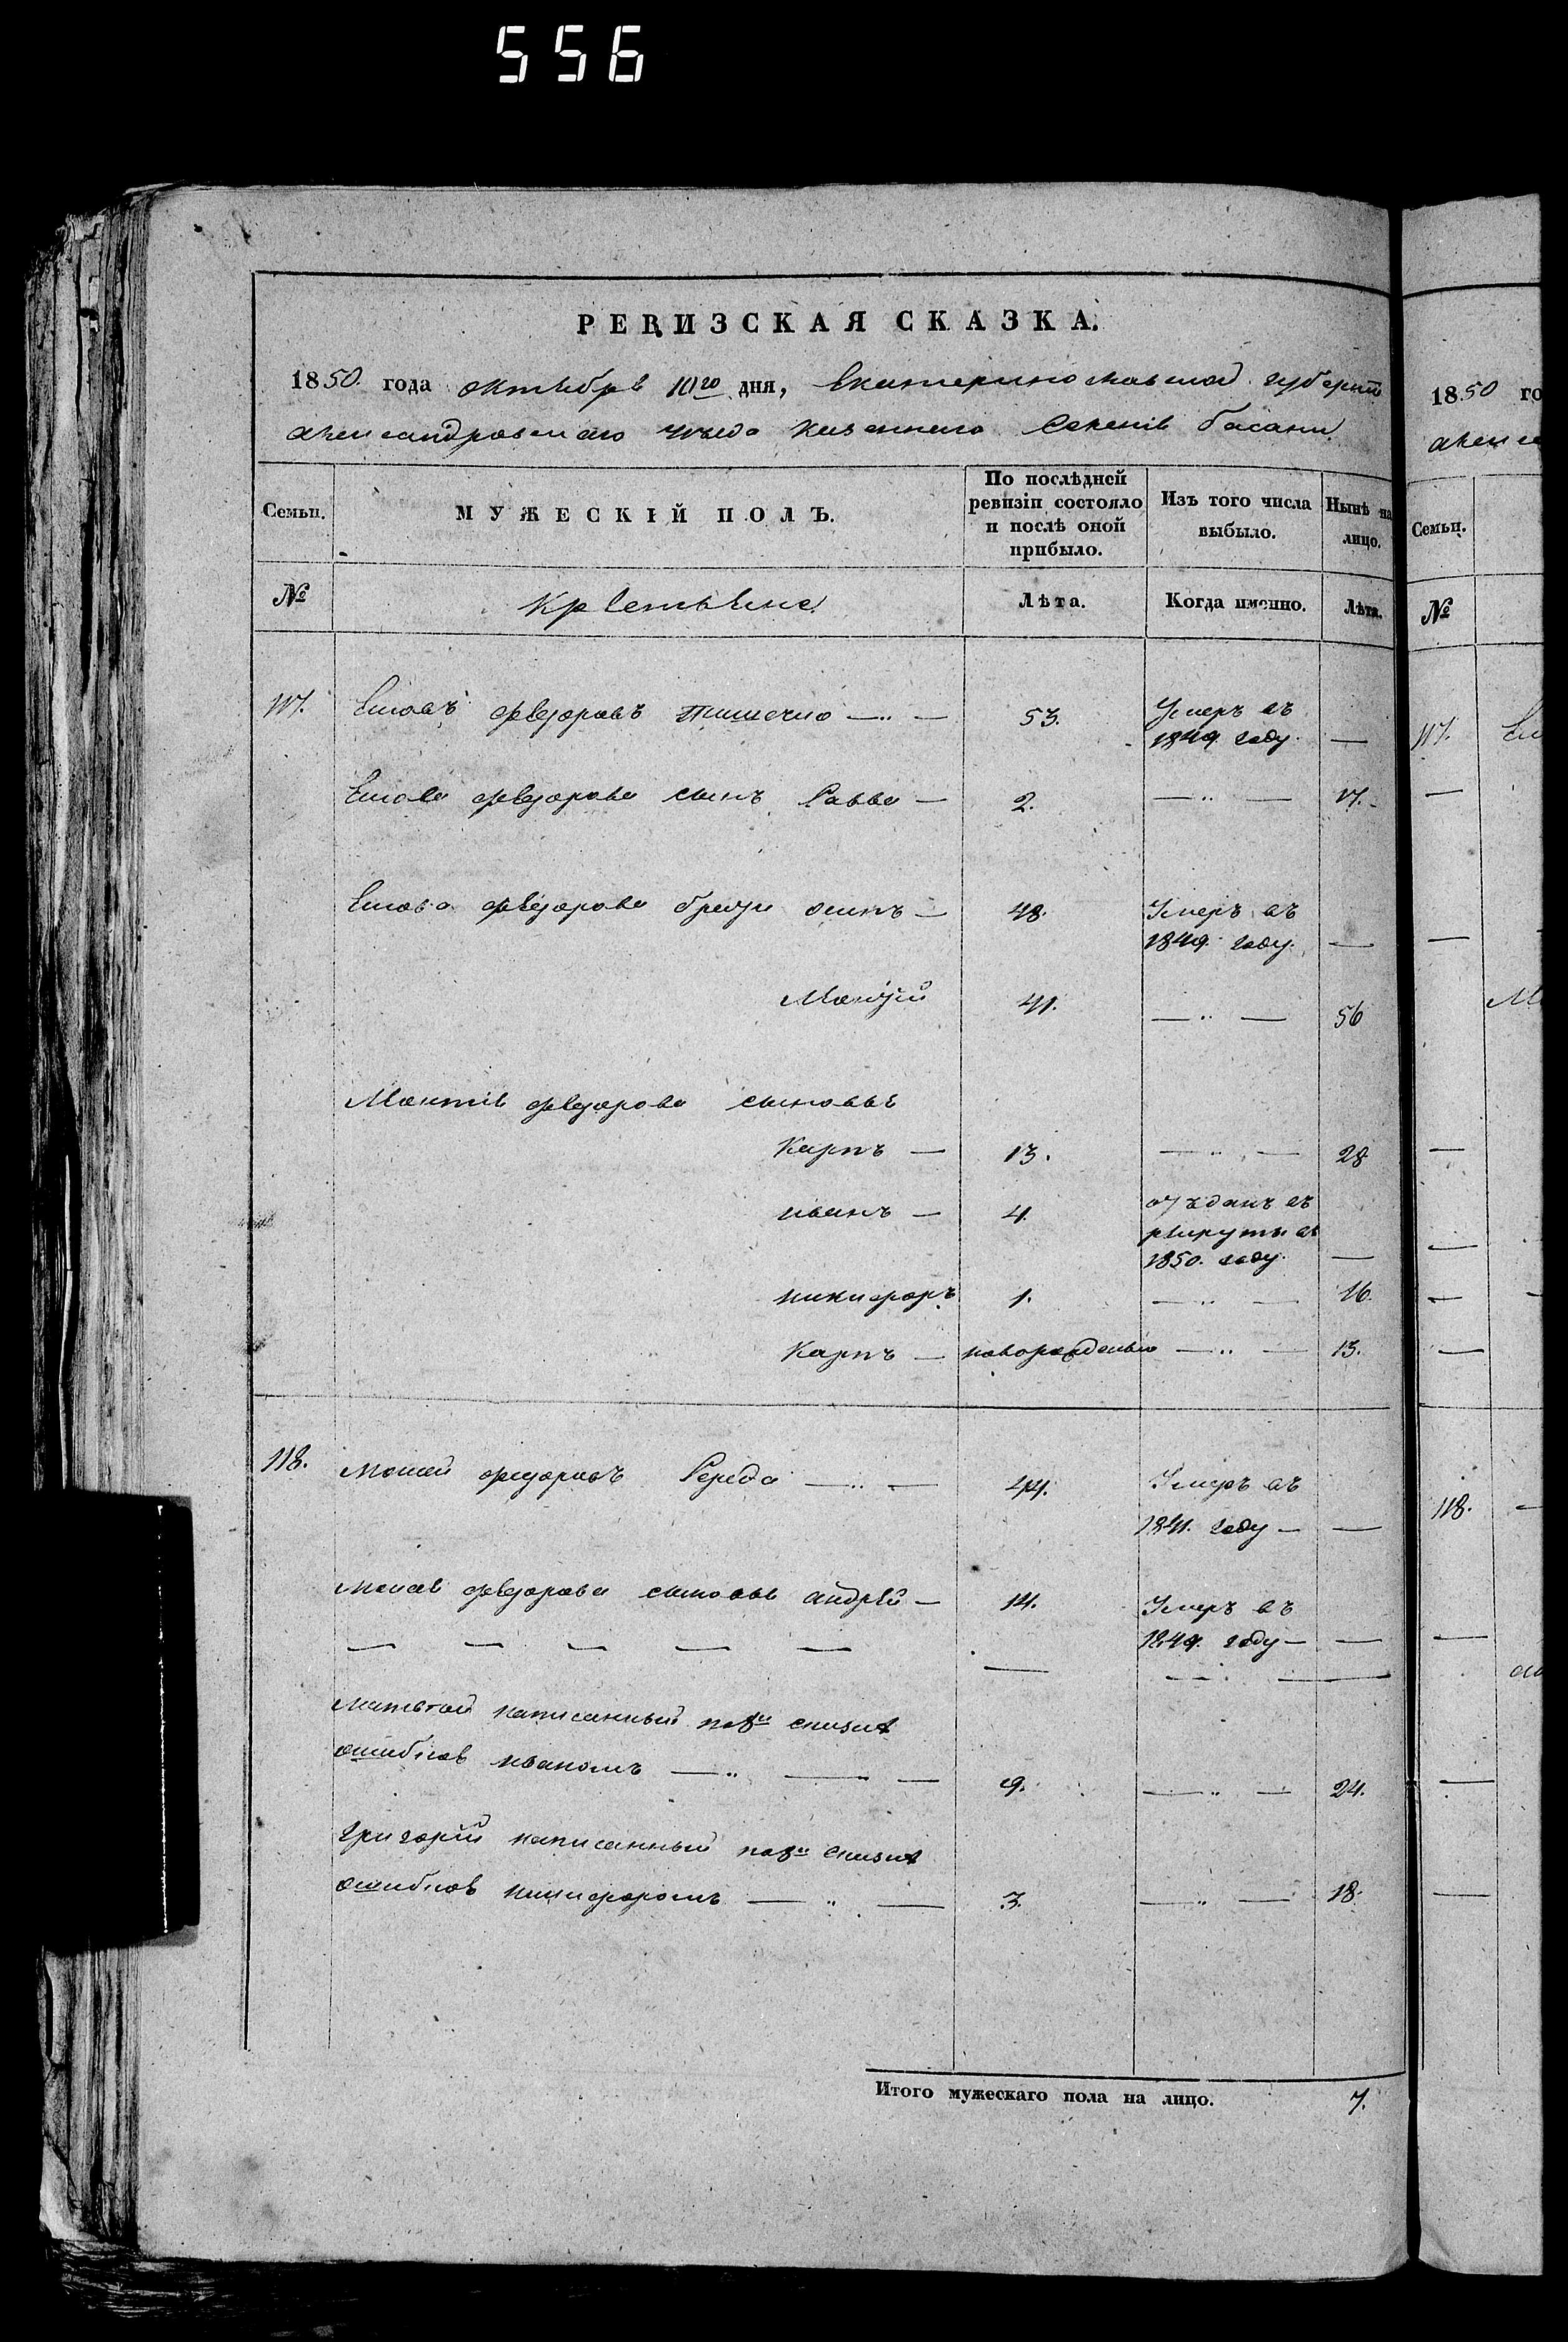 556
РЕВИЗСКАЯ СКАЗКА.
1850 года октября 10го дня, Екатеринославской губерніи
александровскаго уѣзда казеннаго Селенія басани
Семьи. МУЖЕСКІЙ ПОЛЪ. По послѣдней ревизіи состояло и послѣ оной прибыло. Изъ того числа выбыло. Нынѣ на лицо.
№ Крестьяне Лѣта. Когда именно. Лѣта.
117. федоровъ 53. Умеръ въ
1849 году. —
федорова сынъ Савва — 2. — " — 17.
федорова братья осипъ — 48. Умеръ въ
1849 году. —
41. — " — 56
федорова сыновья
Карпъ — 13. — " — 28
иванъ — 4. отданъ въ
рекруты въ
1850. году. —
никифоръ 1. — " — 16
Карпъ — новорожденый — " — 13.
118. моисей федоровъ Середа — " — 44. Умеръ въ
1841. году — —
моисея федорова сыновья андрей — 14. Умеръ въ
1849. году — —
— — — — — — — " — —
матвей написанный по 8й сказке
ошибкою иваномъ — " — — 9. — " — 24.
григорій написанный по 8й сказке
ошибкою никифоромъ — " — 3. — " — 18.
Итого мужескаго пола на лицо. 7.
1850 го
алекса
Семьи.
№
117.
118.